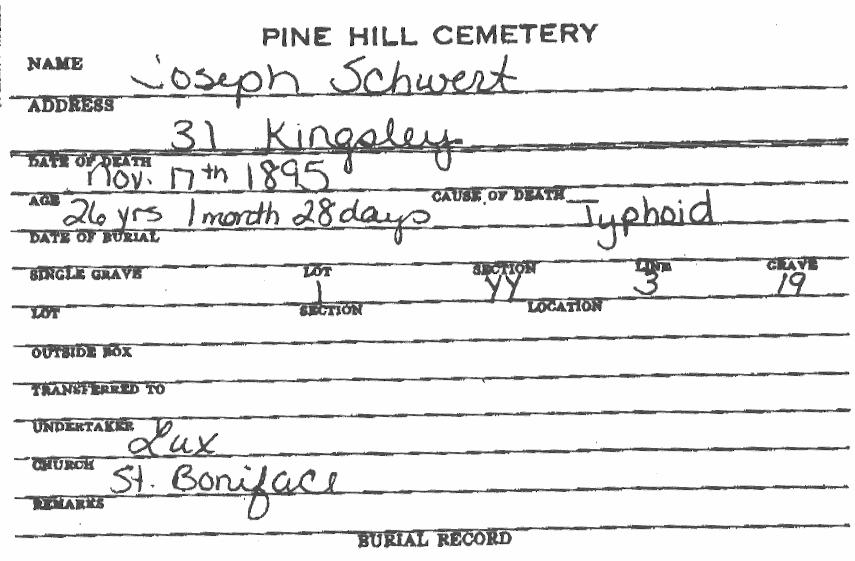 PINE HILL CEMETERY
NAME Joseph Schwert
ADDRESS
31 Kingsley
DATE OF DEATH Nov. 17th 1895
AGE 26 yrs 1 month 28 days CAUSE OF DEATH Typhoid
DATE OF BURIAL
SINGLE GRAVE LOT 1 SECTION YY LINE 3 GRAVE 19
LOT SECTION LOCATION
OUTSIDE BOX
TRANSFERRED TO
UNDERTAKER Lux
CHURCH St. Boniface
REMARKS
BURIAL RECORD